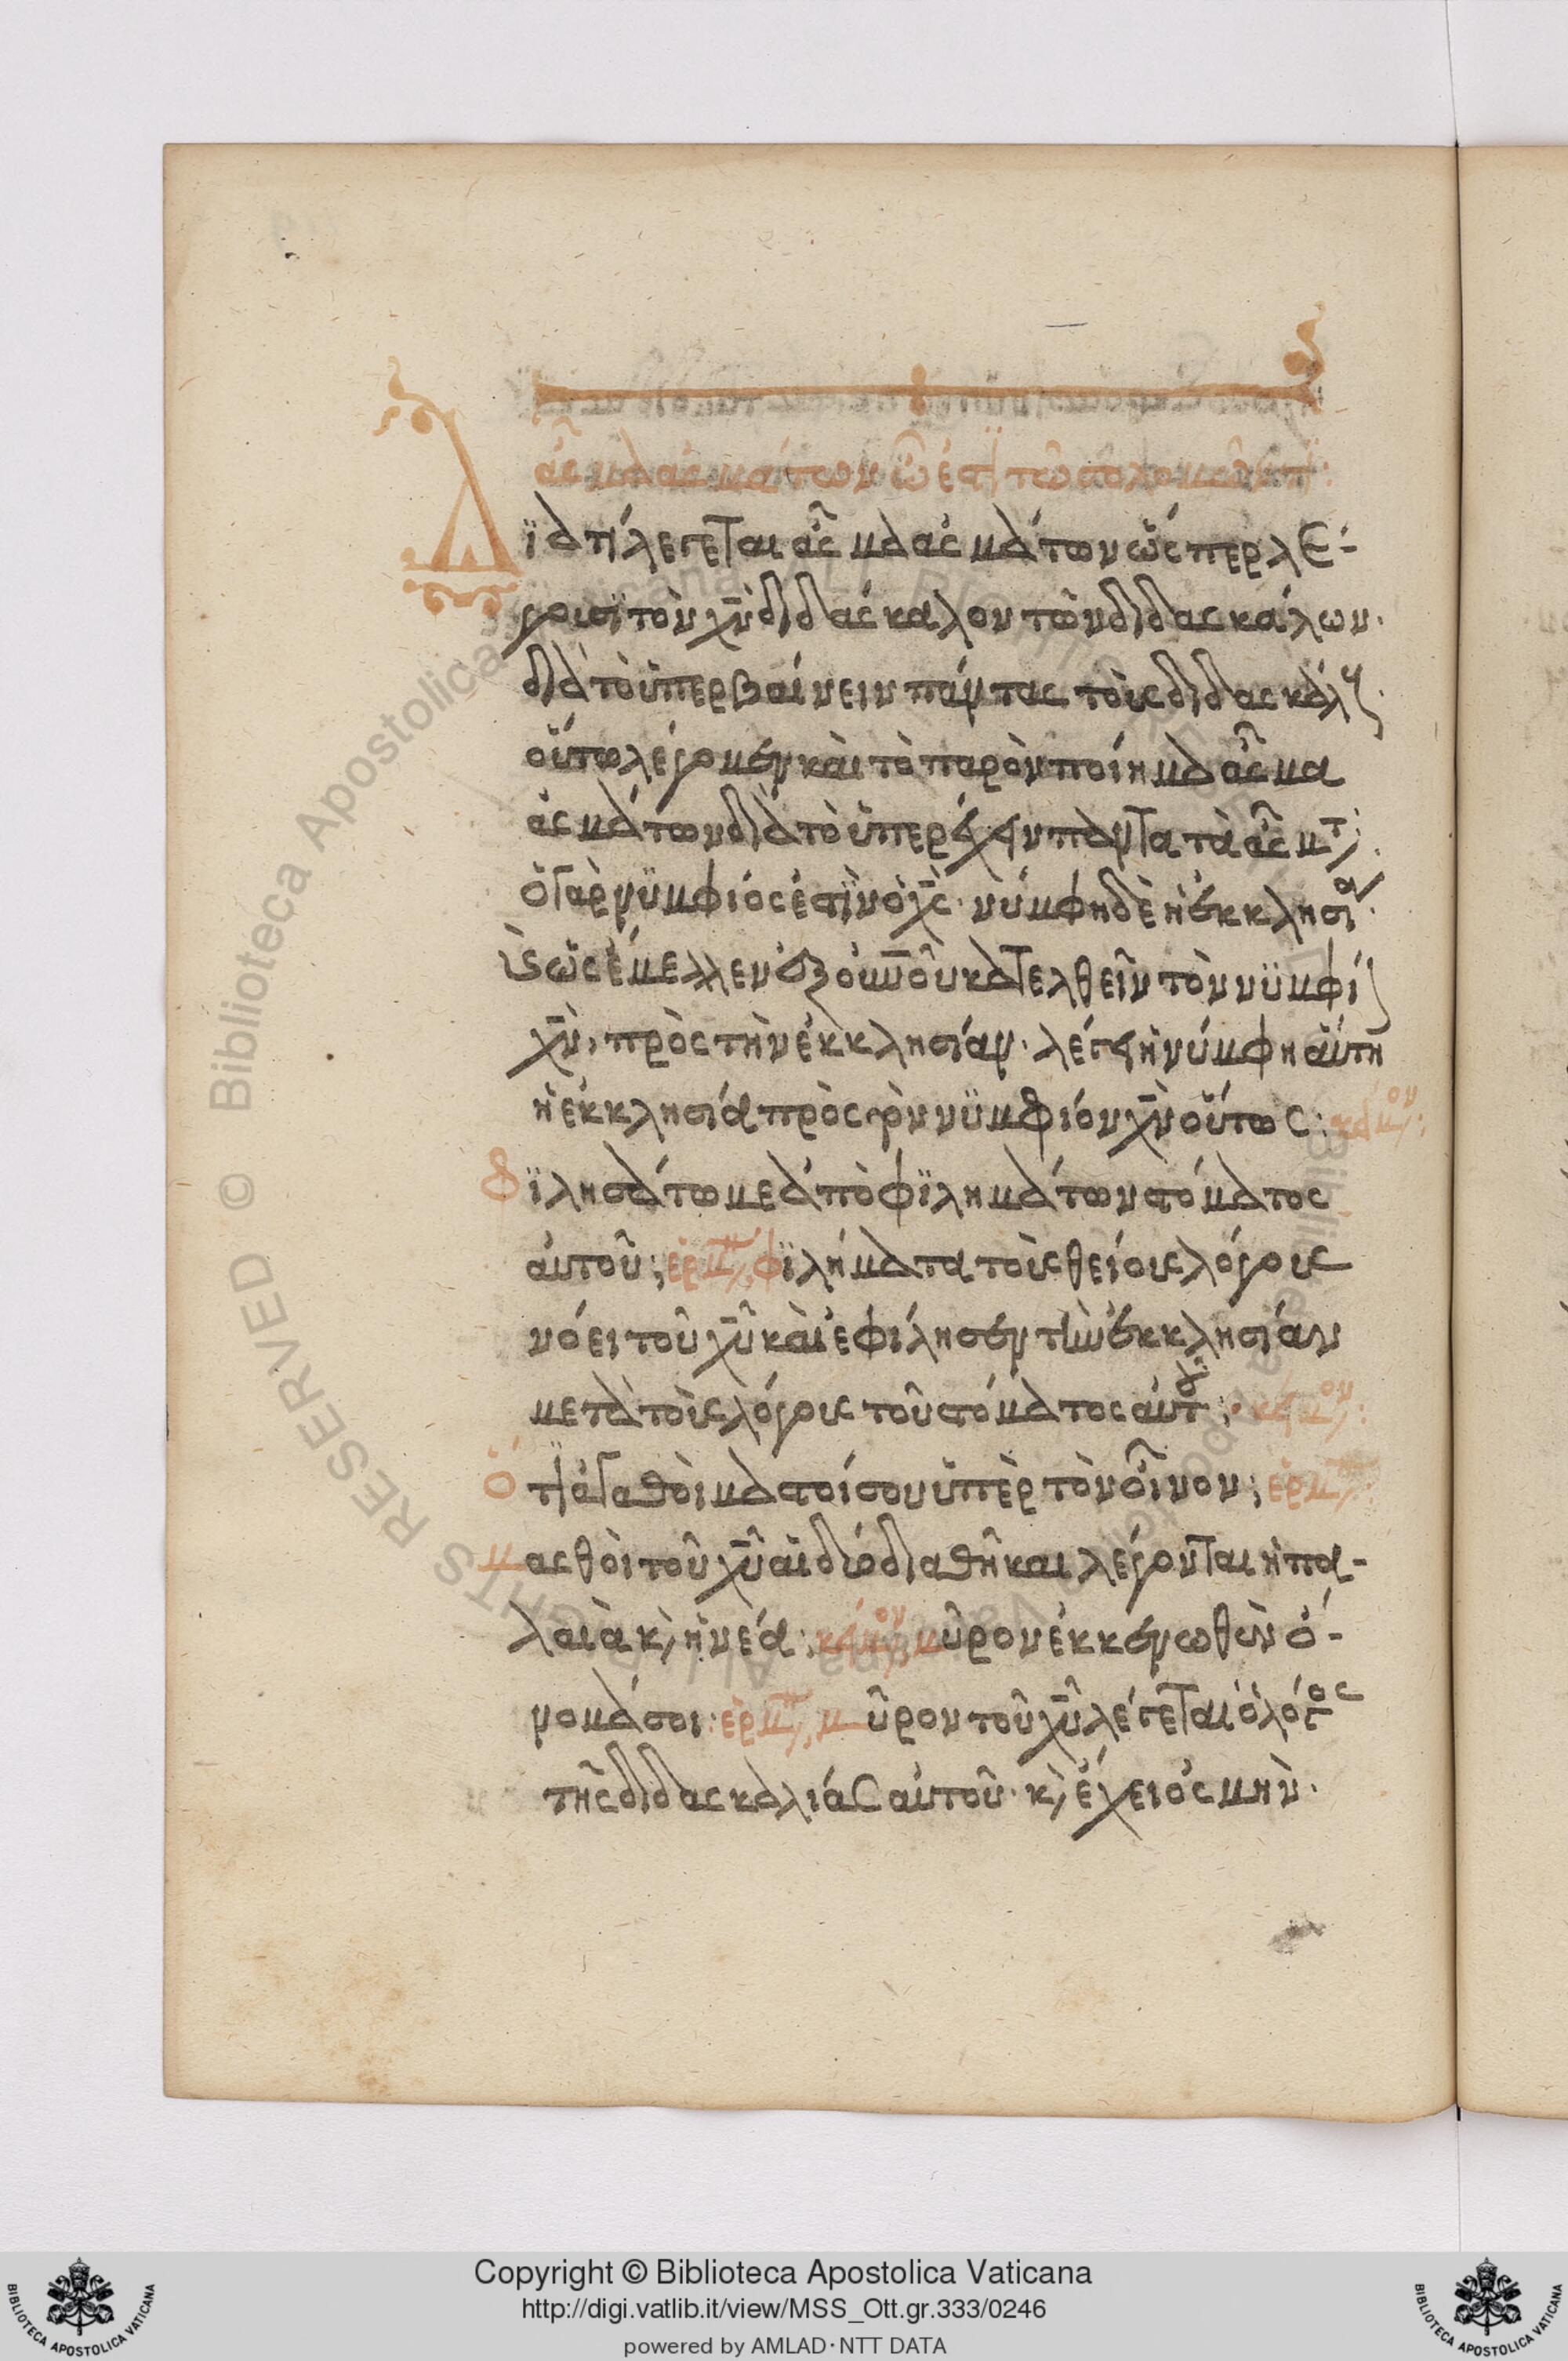 ἆσμα ἀσμάτων
Δϊατί λέγεται ἆσμα ἀσμάτων ὥσπερ λέ-
γουσϊ τὸν χ̅ν̅ διδάσκαλον τῶν διδασκάλων·
διὰ τὸ ὑπερβαίνειν πάντας τοὺς διδασκάλους·
οὕτω λέγομεν καὶ τὸ παρὸν ποίημα ἆσμα
ἀσμάτων διὰ τὸ ὑπερέχειν πάντα τὰ ἄσματ·
ὁ γὰρ νϋμφιός ἐστϊν ὁ χ̅ς̅· νύμφη δὲ ἡ ἐκκλησία·
ὡς ἔμελλεν ἐξ οὐ̅ν̅οῦ κατελθεῖν τὸν νϋμφί
χ̅ν̅, πρὸς τὴν ἐκκλησίαν· λέγει ἡ νύμφη αὕτη
ἡ ἐκκλησία πρὸς τὸν νϋμφιόν χ̅ν̅ οὕτως: κείμον:
Φϊλησάτω με ἀπὸ φϊλημάτων στόματος
αὐτοῦ; ἑρμ φϊλήματα τοῖς θείοις λόγοις
νόει τοῦ χ̅υ̅ καὶ ἐφίλησεν τὴν ἐκκλησίαν
μετὰ τοῖς λόγοις τοῦ στόματος αὐτοῦ; κείμον:
Ὅτϊ ἀγαθοὶ μαστοί σου ὑπὲρ τὸν οἶνον; ἑρμ
μασθοὶ τοῦ χ̅υ̅ αἱ δύο διαθῆκαι λέγονται ἡ πα-
λαιὰ κ, ἡ νέα: κείμον μῦρον ἐκκενωθὲν ὄ-
νομά σοι: ἑρμ μῦρον τοῦ χ̅υ̅ λέγεται ὁ λόγος
τῆς διδασκαλιάς αὐτοῦ· κ, ἔχει ὀσμὴν·
Copyright © Biblioteca Apostolica Vaticana
http://digi.vatlib.it/view/MSS_Ott.gr.333/0246
powered by AMLAD·NTT DATA
BIBLIOTECA APOSTOLICA VATICANA
BIBLIOTECA APOSTOLICA VATICANA